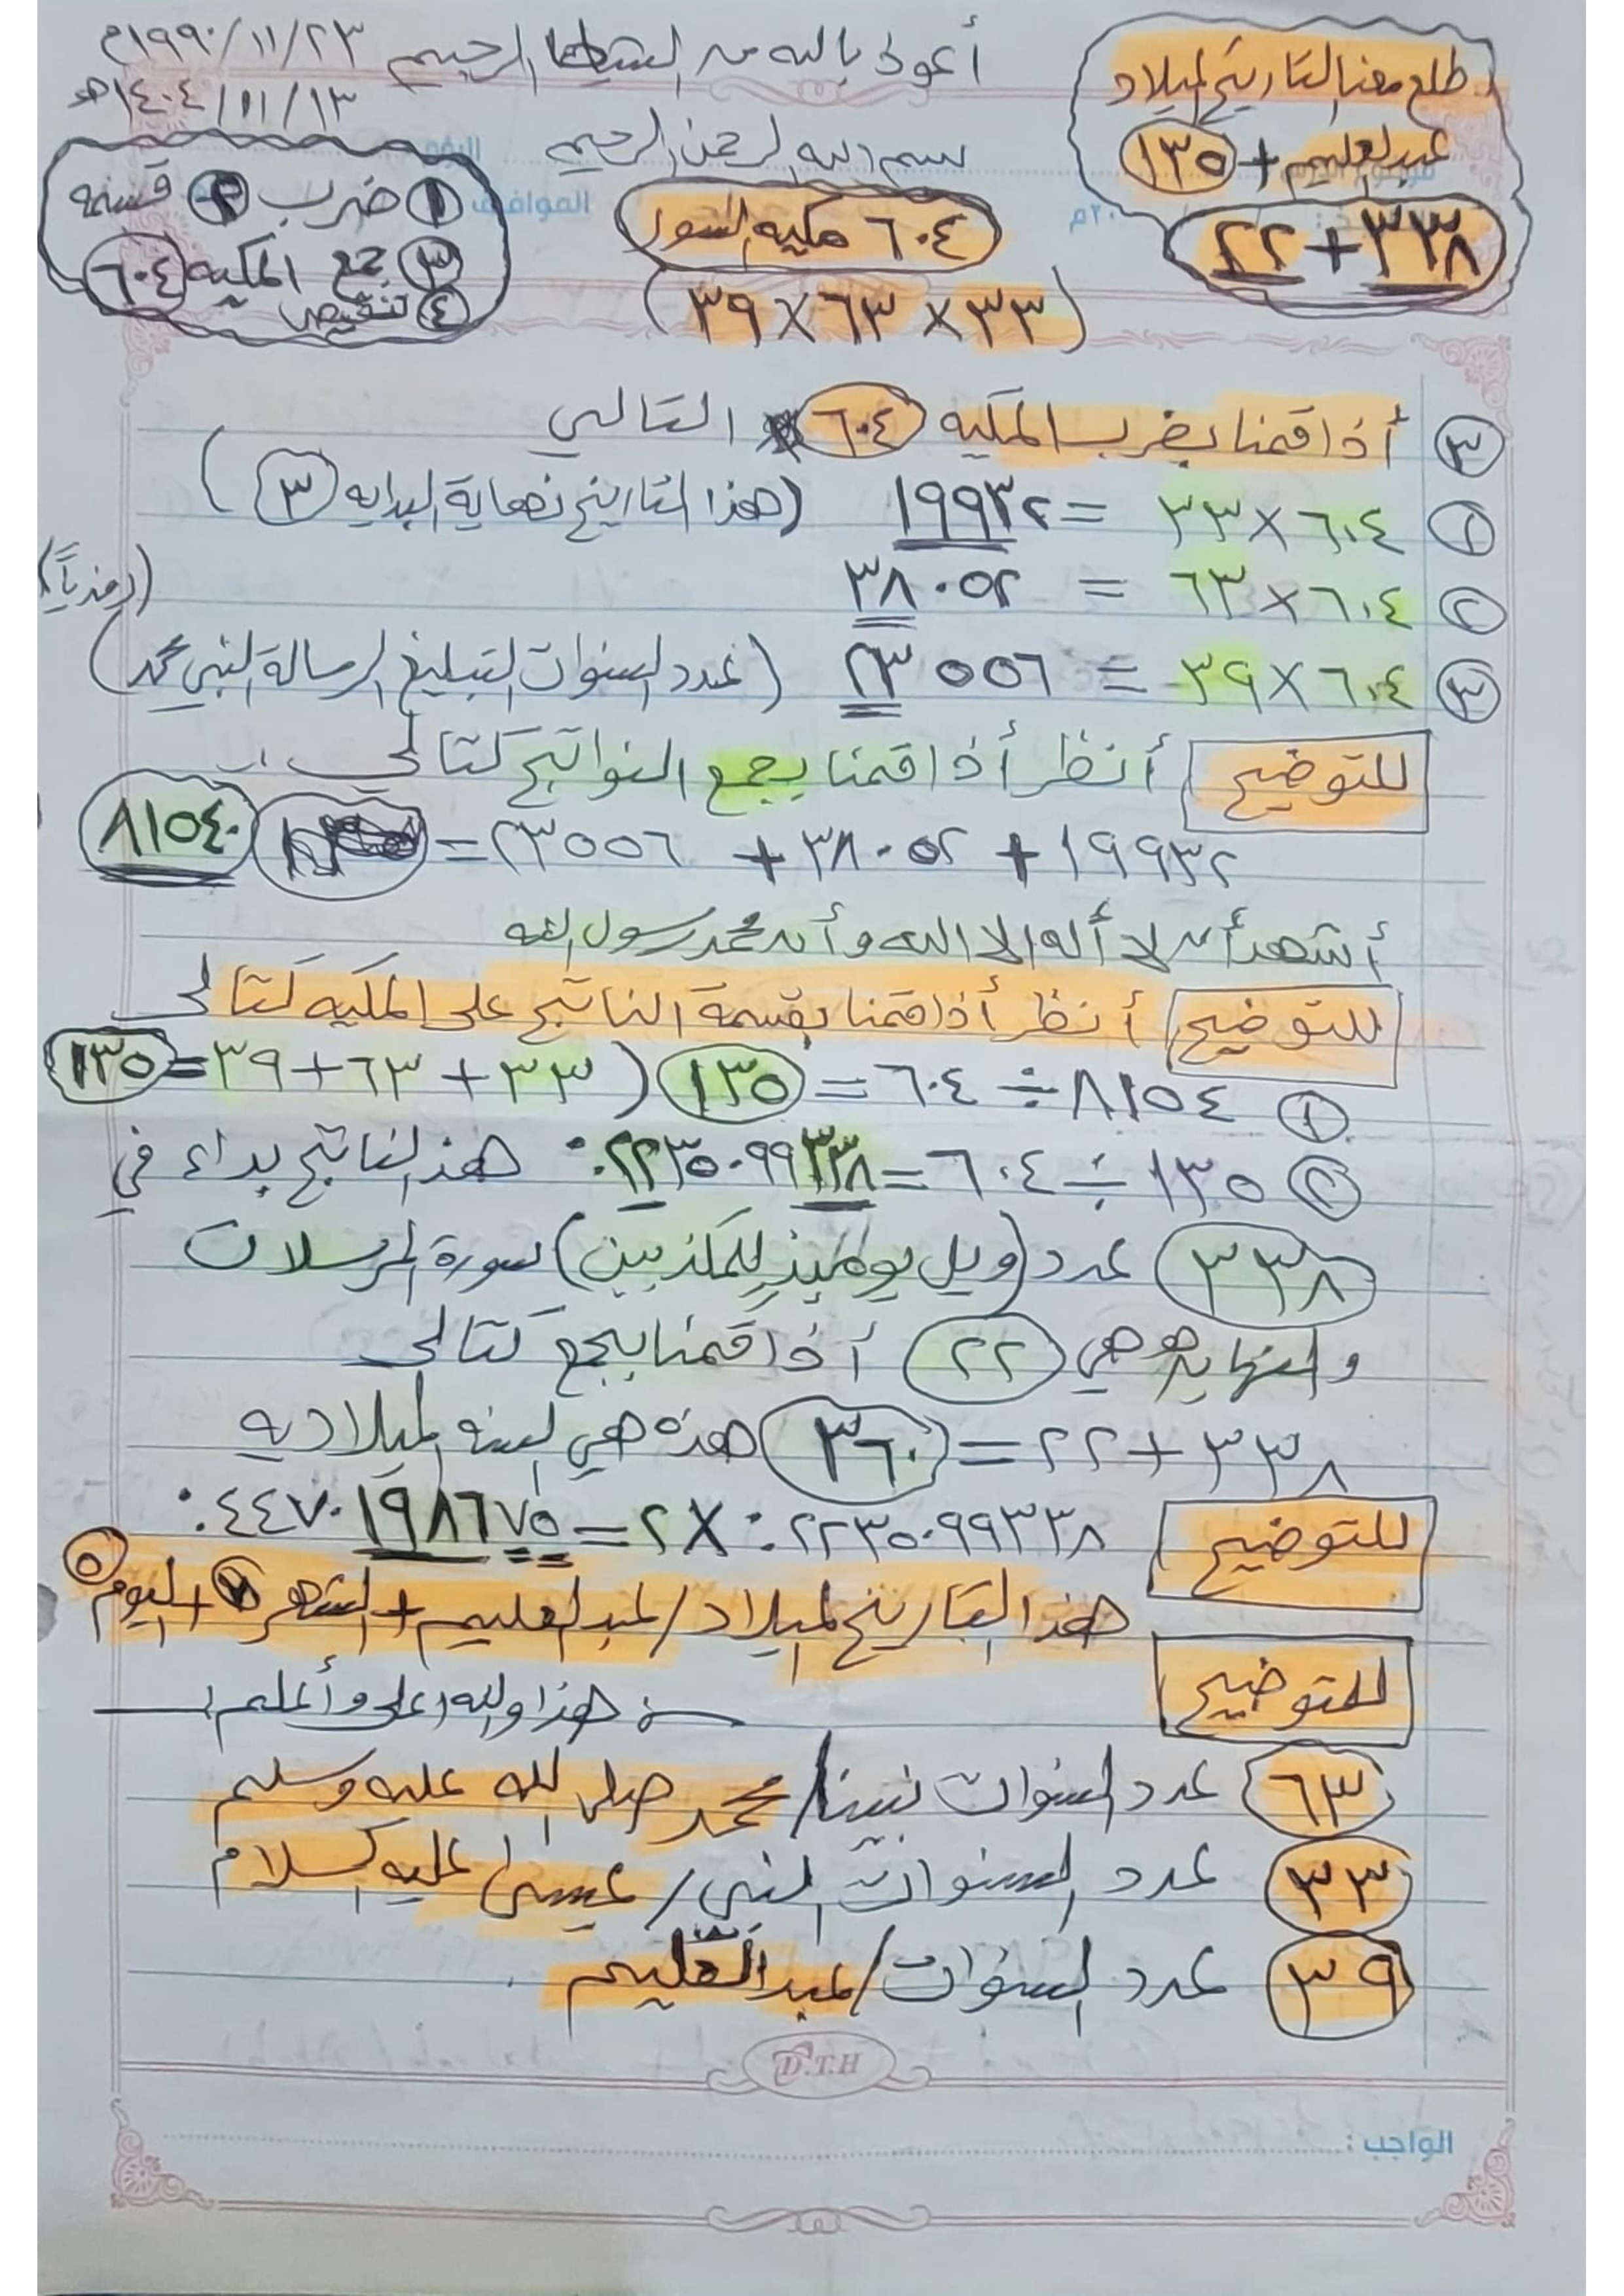 أعوذ بالله من الشيطان الرجيم
١٩٩٠/١١/٢٣م
١٤٠٤/١١/١٣هـ
بسم الله الرحمن الرحيم
طلع معنا التاريخ لميلاد
عبدالعليم + ١٣٥
٣٣٨ + ٢٢
٦٠٤ مكيه السور
(٣٣ × ٦٣ × ٣٩)
١ ضرب ٢ قسمه
٣ جمع المكيه ٦٠٤
٤ تنقيص
الموافق
٢٠م
٣ أذا قمنا بضرب المكيه ٦٠٤ التالي
١ ٦٠٤ × ٣٣ = ١٩٩٣٢ (هذا التاريخ نهاية البدايه ٣)
٢ ٦٠٤ × ٦٣ = ٣٨٠٥٢
٣ ٦٠٤ × ٣٩ = ٢٣٥٥٦ (عدد السنوات لتبليغ الرسالة النبي محمد)
للتوضيح أنظر أذا قمنا بجمع النواتج كتالي
١٩٩٣٢ + ٣٨٠٥٢ + ٢٣٥٥٦ = ٨١٥٤٠
أشهد أن لا أله الا الله وأن محمد رسول الله
للتوضيح أنظر أذا قمنا بقسمة الناتج على المكيه كتالى
١ ٨١٥٤ ÷ ٦٠٤ = ١٣٥ ( ٣٣ + ٦٣ + ٣٩ = ١٣٥
٢ ١٣٥ ÷ ٦٠٤ = ٠.٢٢٣٥٠٩٩٣٣٨ هذ الناتج بداء في
٣٣٨ عدد (ويل يوميذٍ للمكذبين) سورة المرسلات
والنهايه هي ٢٢ أذا قمنا بجمع كتالى
٣٣٨ + ٢٢ = ٣٦٠ هذه هي السنه الميلاديه
للتوضيح ٠.٢٢٣٥٠٩٩٣٣٨ × ٢ = ٠.٤٤٧٠١٩٨٦٧٥
هذ التاريخ لميلاد / عبدالعليم + الشهر ٧ + اليوم ٥
للتوضيح
هذا والله اعلى وأعلم
٦٣ عدد السنوات نبينا / محمد صلى الله عليه وسلم
٣٣ عدد السنوات النبي / عيسى عليه السلام
٣٩ عدد السنوات / عبدالعليم
D.T.H
الواجب :